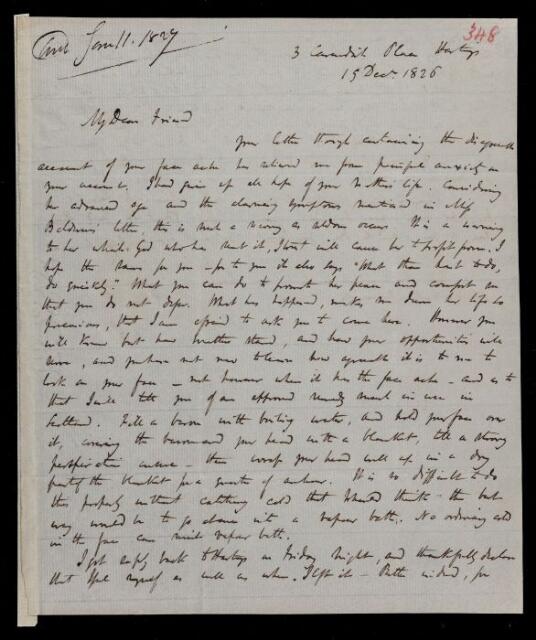 348
Jan 11. 1827
3 Cavendish Place Hastgs
15 Decr. 1826
My Dear Friend
your letter though containing the disagreeable
account of your face ache has relieved me from painful anxiety on
your account. I had given up all hope of your Mother's life. Considering
her advanced age and the alarming symptoms mentioned in Miss
Baldwin's letter, this is such a recovery as seldom occurs. It is a warning
to her which God who has sent it, I trust will cause her to profit from. I
hope the same for you - for to you it also says "What thou hast to do,
do quickly." What you can do to promote her peace and comfort
that you do not defer. What has happened, makes me deem her life so
precarious, that I am afraid to ask you to come here. However you
will know best how matters stand, and how your opportunities will
serve, and you have not now to learn how agreeable it is to me to
look on your face - not however when it has the face ache - and as to
that I will tell you of an approved remedy much in use in
Scotland. Fill a bason with boiling water, and hold your face over
it, covering the bason and your head with a blanket, till a strong
perspiration ensue - then wrap your head well up in a dry
part of the blanket for a quarter of an hour. It is so difficult to do
this properly without catching cold that I should think the best
way would be to go at once into a vapour bath. No ordinary cold
in the face can resist vapour bath.
I got safely back to Hastgs on Friday night, and thankfully declare
that I feel myself as well as when I left it - Better indeed, for